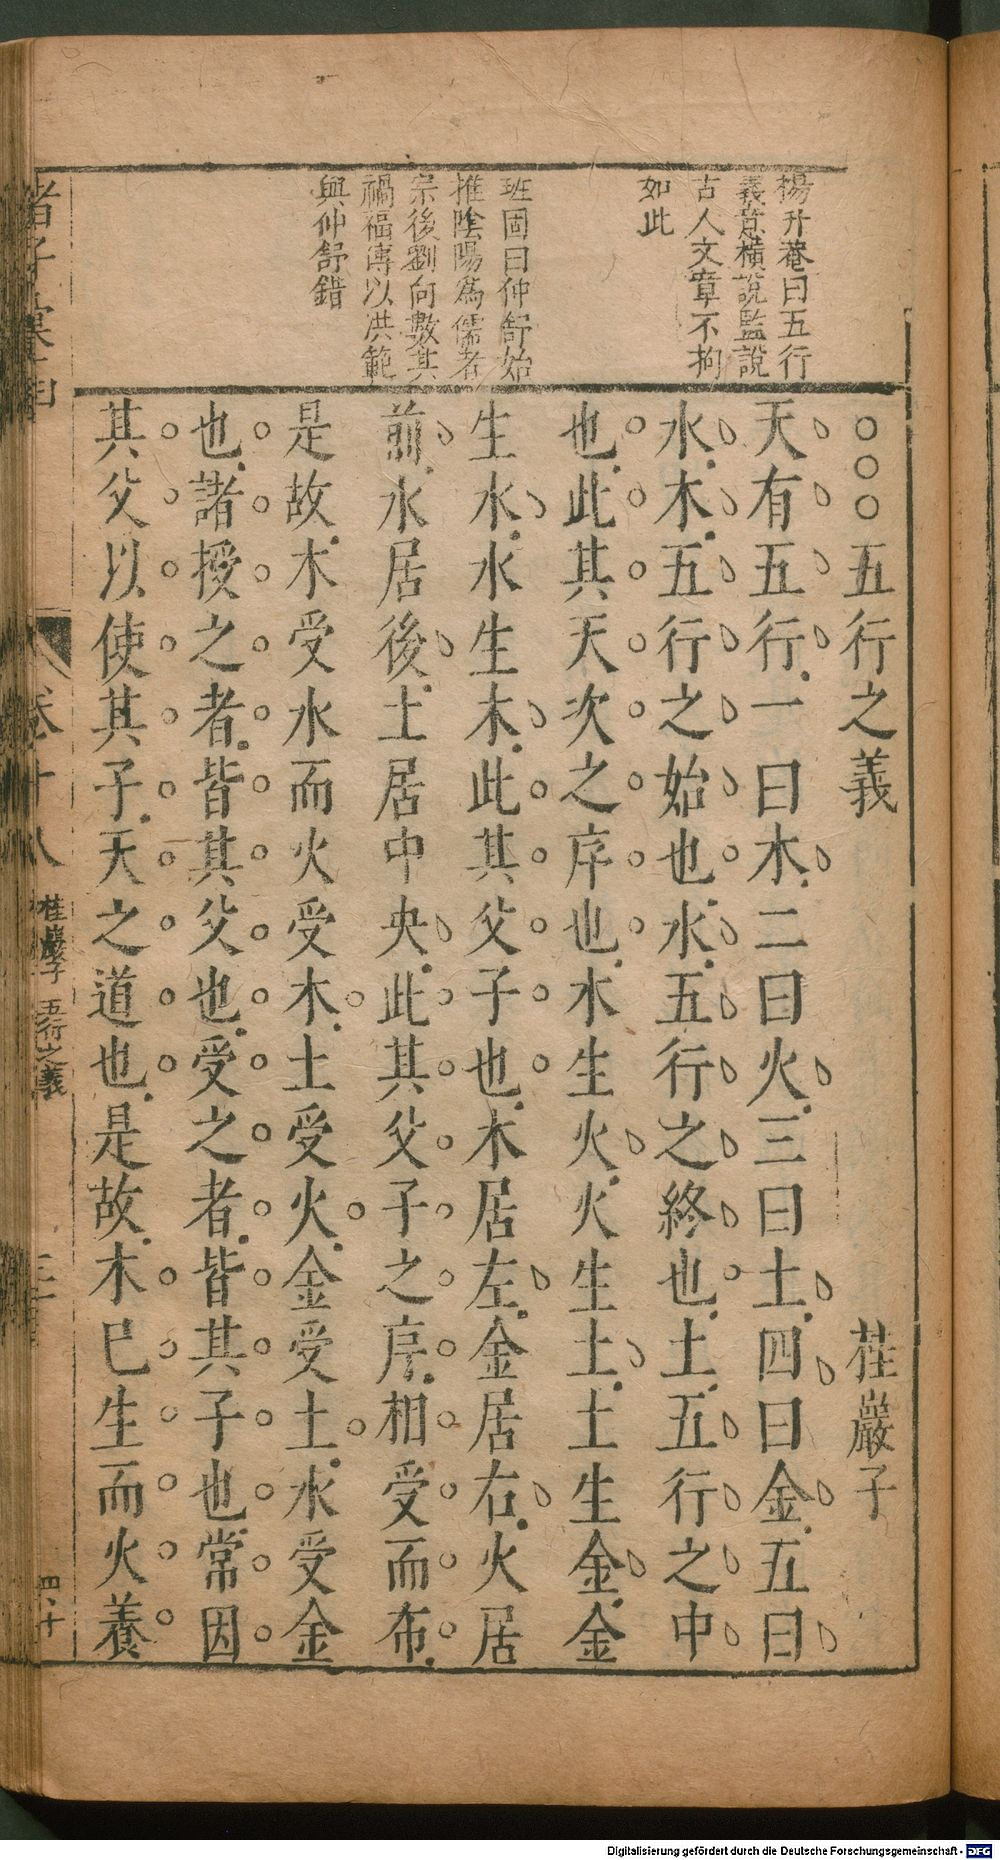 楊升菴曰五行
義意橫說監說
古人文章不拘
如此
班固曰仲舒始
推陰陽為儒者
宗後劉向數其
禍福傳以洪範
與仲舒錯
○○○五行之義 桂巖子
天有五行一曰木二曰火三曰土四曰金五曰
水木五行之始也水五行之終也土五行之中
也此其天次之序也木生火火生土土生金金
生水水生木此其父子也木居左金居右火居
前水居後土居中央此其父子之序相受而布
是故木受水而火受木土受火金受土水受金
也諸授之者皆其父也受之者皆其子也常因
其父以使其子天之道也是故木已生而火養
卷十八 桂巖子 五行之義
四十
Digitalisierung gefördert durch die Deutsche Forschungsgemeinschaft - DFG